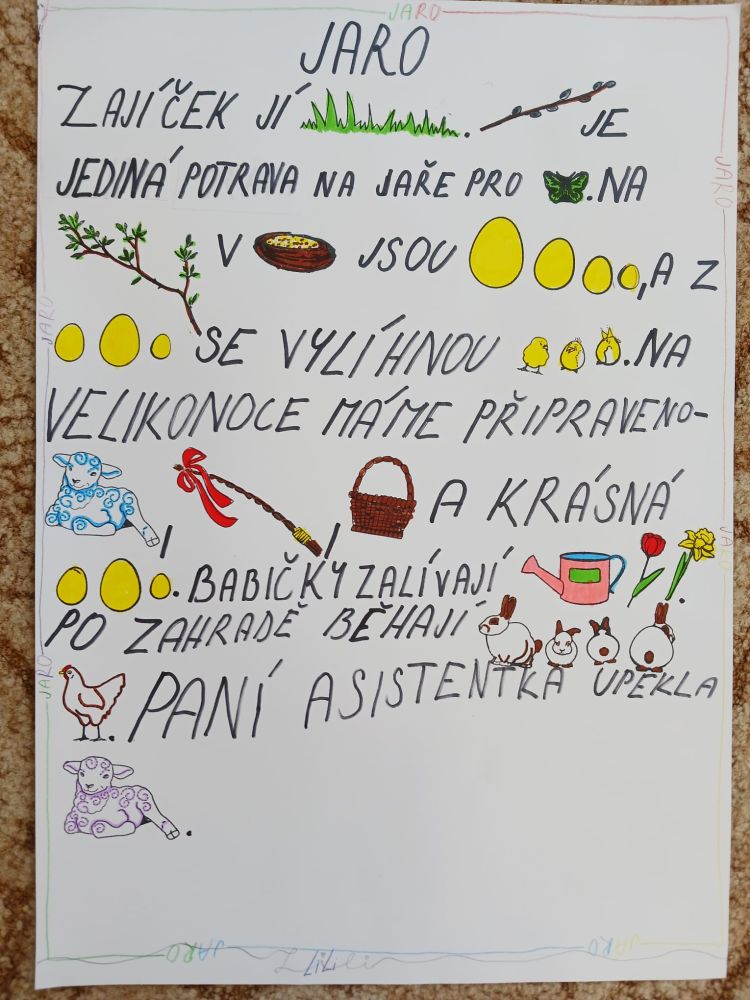 JARO
JARO
ZAJÍČEK JÍ . JE
JEDINÁ POTRAVA NA JAŘE PRO . NA
JARO
V JSOU , A Z
JARO
SE VYLÍHNOU . NA
VELIKONOCE MÁME PŘIPRAVENO-
, , A KRÁSNÁ
JARO
. BABIČKY ZALÍVAJÍ .
PO ZAHRADĚ BĚHAJÍ
JARO
. PANÍ ASISTENTKA UPEKLA
.
JARO
JARO
JARO